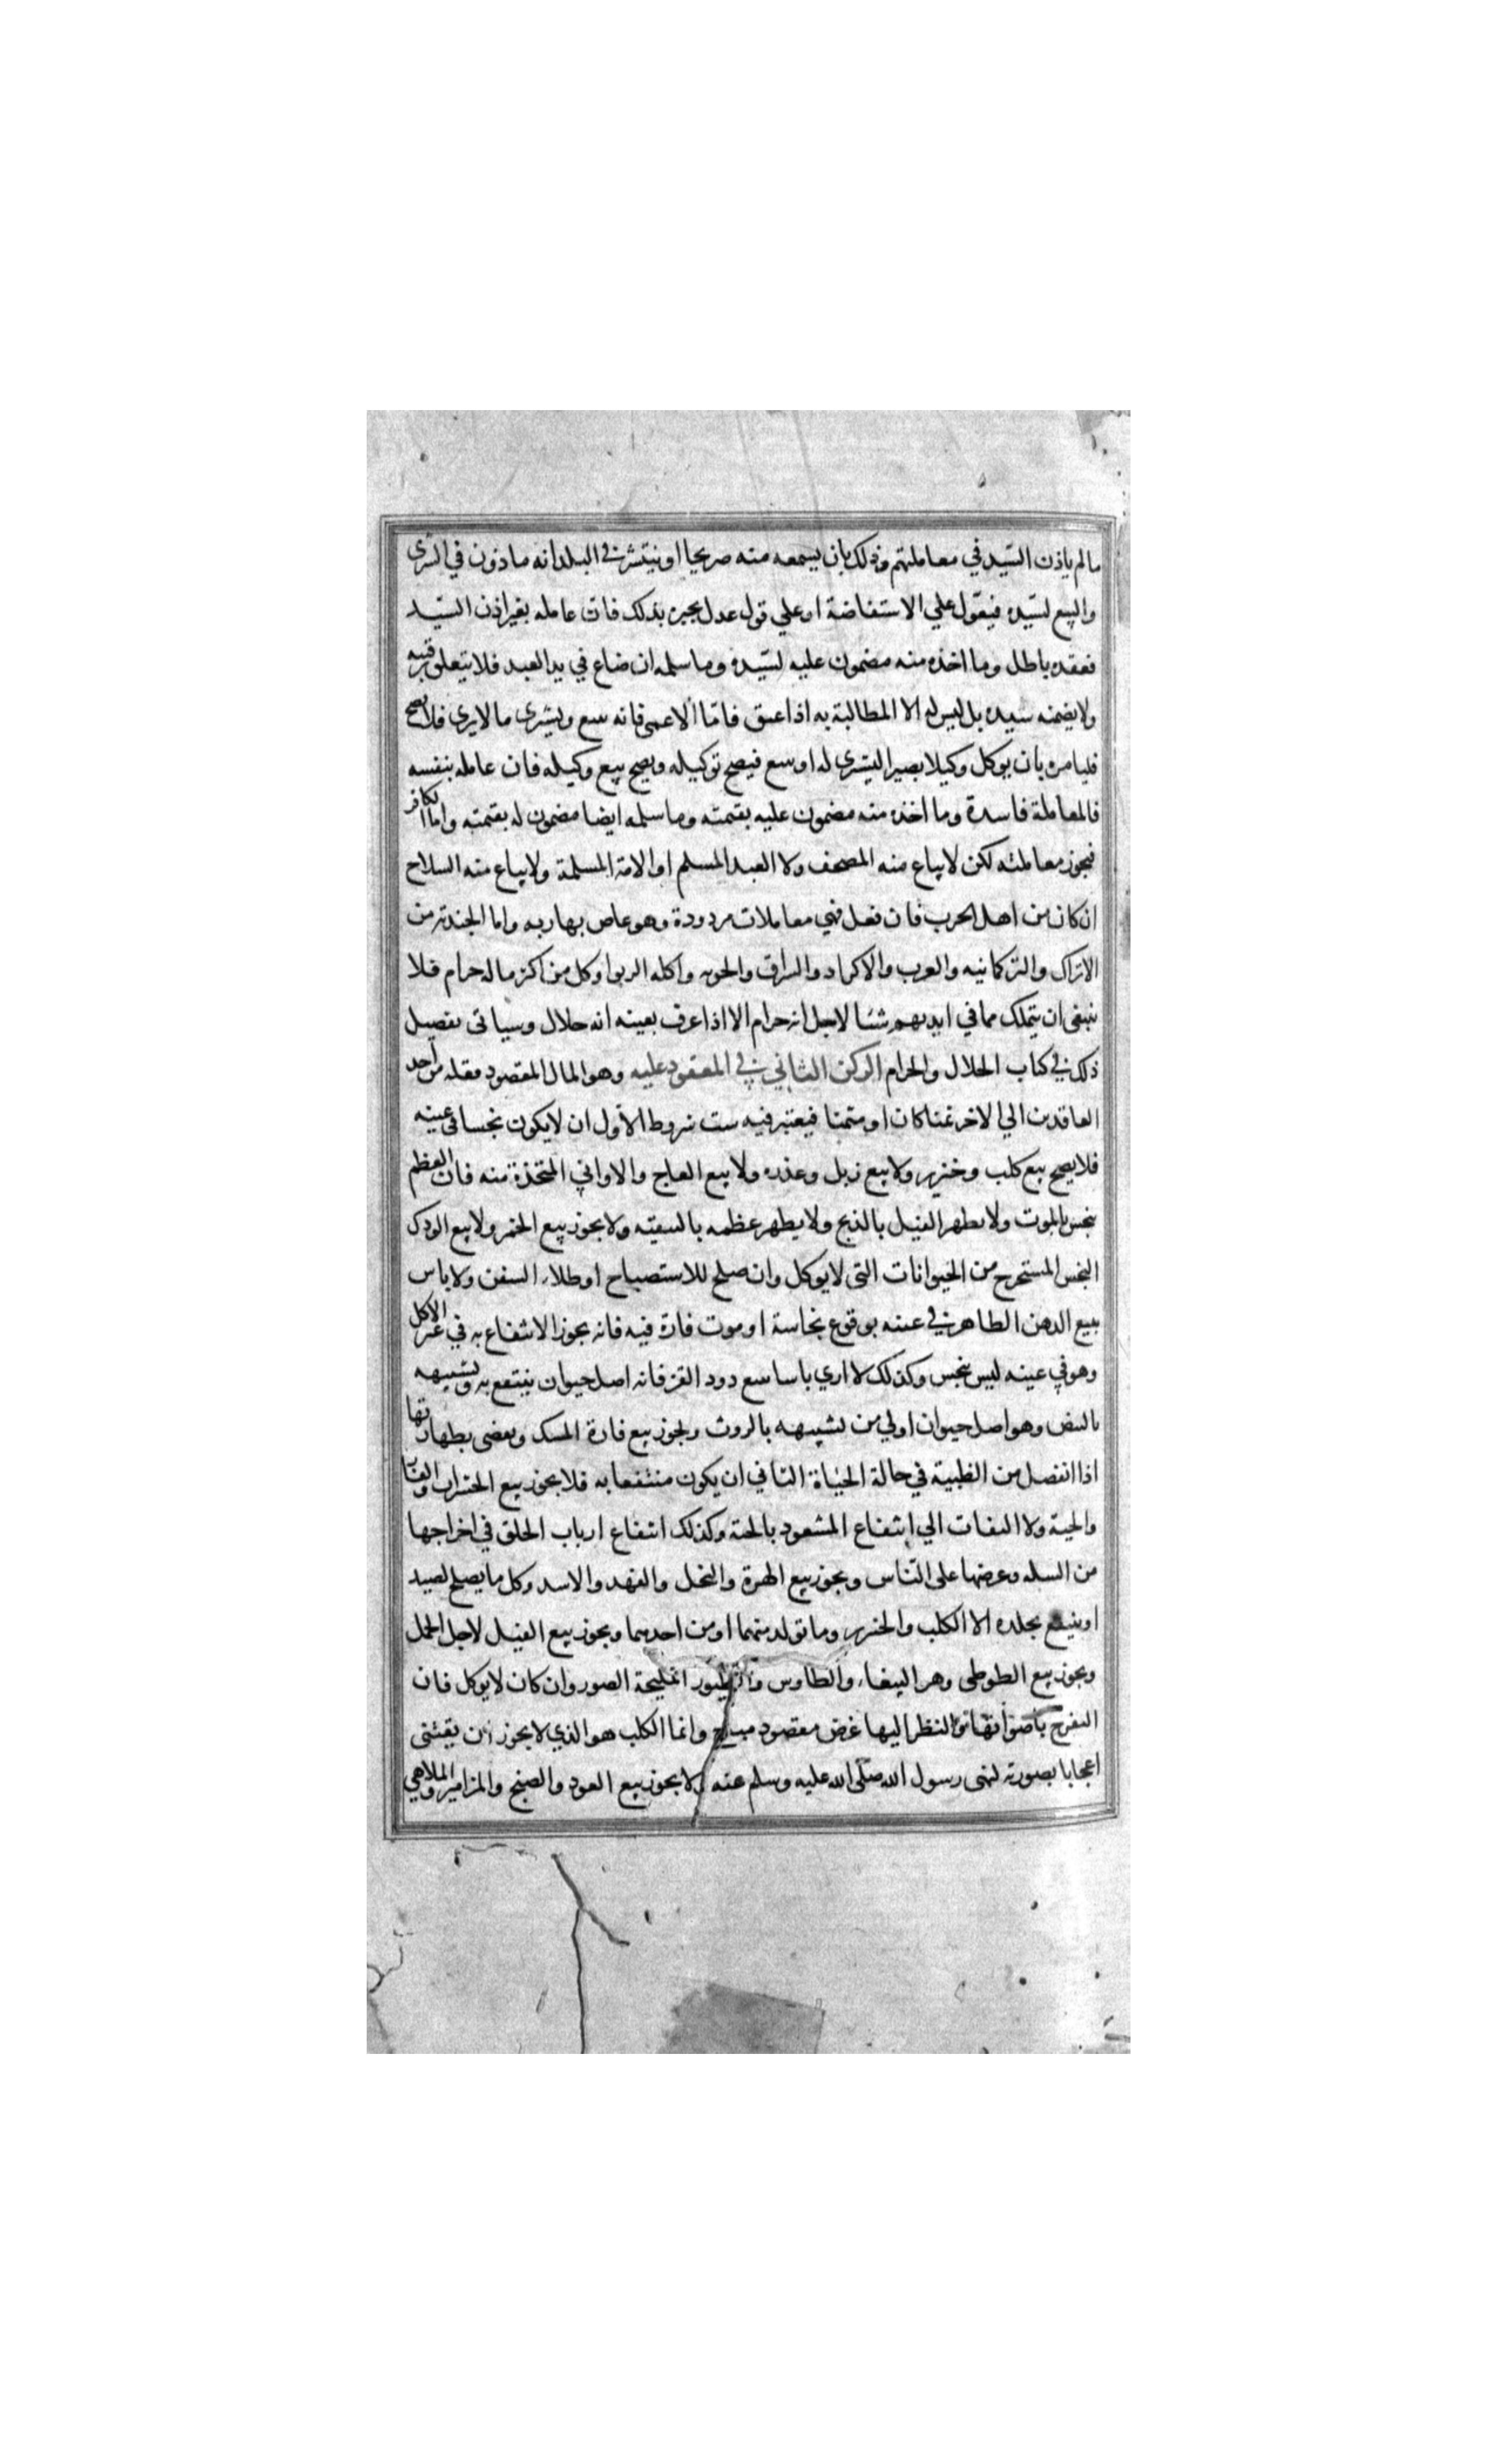 مالم ياذن السّيد في معاملتهم وذلك بان يسمعه منه صريحا او ينتشر في البلد انه ماذون في الشرى
والبيع لسّيده فيعول علي الاستفاضة او علي قول عدل يخبره بذلك فان عامله بغير اذن السّيد
فعقده باطل وما اخذه منه مضمون عليه لسّيده وما سلمه ان ضاع في يد العبد فلا يتعلق برقبته
ولا يضمنه سيده بل ليس له الا المطالبة به اذا عتق فامّا الاعمى فانه يبيع ويشرى مالا يرى فلا يصح
فليامره بان يوكل وكيلا بصيرا ليشرى له او يبيع فيصح توكيله ويصح بيع وكيله فان عامله بنفسه
فالمعاملة فاسدة وما اخذه منه مضمون عليه بقيمته وما سلمه ايضا مضمون له بقيمته واما الكافر
فيجوز معاملته لكن لا يباع منه المصحف ولا العبد المسلم او الامة المسلمة ولا يباع منه السلاح
ان كان من اهل الحرب فان فعل فهي معاملات مردودة وهو عاص بها ربه واما الجندية من
الاتراك والتركمانيه والعرب والاكراد والسراق والخونه واكله الربوا وكل من اكثر ماله حرام فلا
ينبغي ان يتملك مما في ايديهم شئا لاجل انه حرام الا اذا عرف بعينه انه حلال وسياتى تفصيل
ذلك في كتاب الحلال والحرام الركن الثاني في المعقود عليه وهو المال المقصود نقله من احد
العاقدين الي الاخر ثمنا كان او مثمنا فيعتبر فيه ست شروط الاول ان لا يكون نجسا في عينه
فلا يصح بيع كلب وخنزير ولا بيع زبل وعذره ولا بيع العاج والاواني المتخذة منه فان العظم
ينجس بالموت ولا يطهر الفيل بالذبح ولا يطهر عظمه بالتنقيه ولا يجوز بيع الخمر ولا بيع الودك
النجس المستخرج من الحيوانات التى لا يوكل وان صلح للاستصباح او طلاء السفن ولا باس
ببيع الدهن الطاهر في عينه بوقوع نجاسة او موت فارة فيه فانه يجوز الانتفاع به في غير الاكل
وهو في عينه ليس بنجس وكذلك لا اري باسا ببيع دود القز فانه اصل حيوان ينتفع به وتشبيهه
بالبيض وهو اصل حيوان اولي من تشبيهه بالروث ويجوز بيع فارة المسك ويقضى بطهارتها
اذا انفصل من الظبية في حالة الحياة الثاني ان يكون منتفعا به فلا يجوز بيع الحشرات والفار
والحية ولا التفات الي انتفاع المشعود بالحية وكذلك انتفاع ارباب الحلق في اخراجها
من السله وعرضها على النّاس ويجوز بيع الهرة والنحل والفهد والاسد وكل ما يصلح لصيد
او ينتفع بجلده الا الكلب والخنزير وما تولد منهما او من احدهما ويجوز بيع الفيل لاجل الحمل
ويجوز بيع الطوطى وهر الببغاء والطاوس والطيور المليحة الصور وان كان لا يوكل فان
التفرج باصواتها والنظر اليها غرض مقصود مباح وانما الكلب هو الذي لا يجوز ان يقتنى
اعجابا بصورته لنهى رسول الله صلّى الله عليه وسلم عنه ولا يجوز بيع العود والصنج والمزامير والملاهي